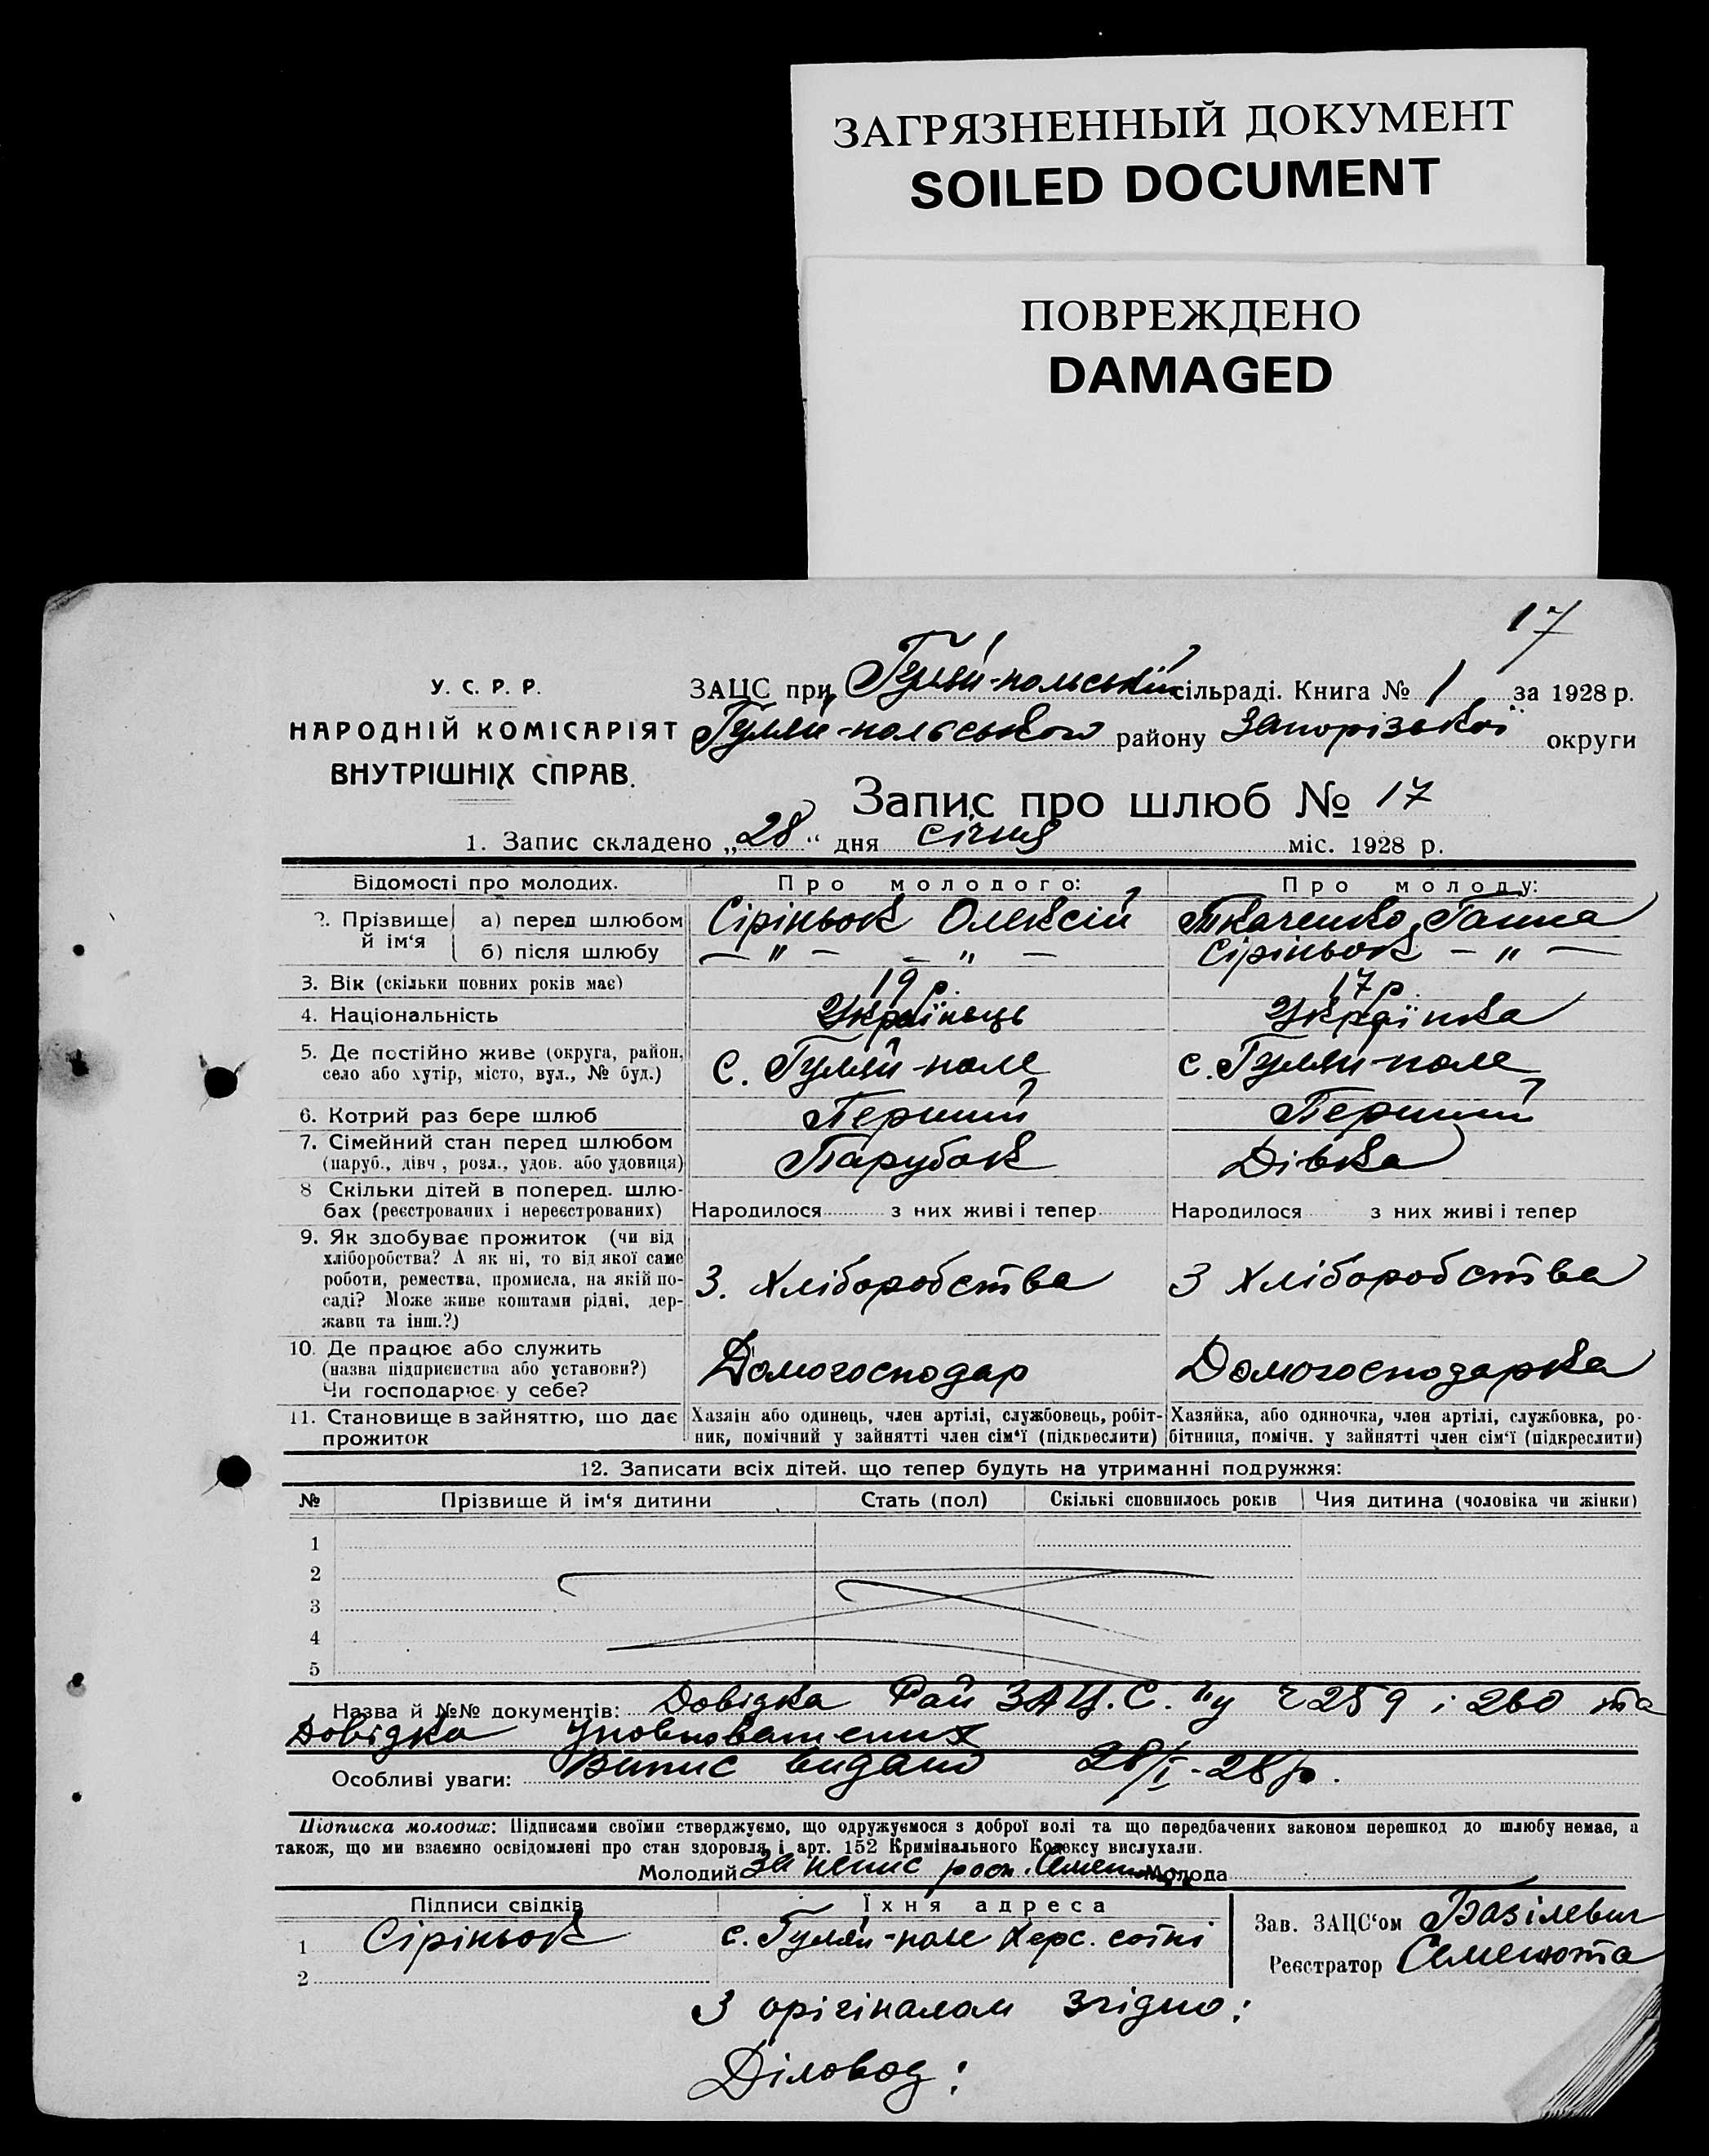 ЗАГРЯЗНЕННЫЙ ДОКУМЕНТ
SOILED DOCUMENT
ПОВРЕЖДЕНО
DAMAGED
17
У. С. Р. Р.
НАРОДНІЙ КОМІСАРІЯТ
ВНУТРІШНІХ СПРАВ.
ЗАЦС при Гуляй-польській сільраді. Книга № 1 за 1928 р.
Гуляй-польського району Запорізької округи
Запис про шлюб № 17
1. Запис складено „28“ дня січня міс. 1928 р.
Відомості про молодих. Про молодого: Про молоду:
2. Прізвище й ім‘я а) перед шлюбом Сіріньок Олексій Ткаченко Ганна
б) після шлюбу — " — — " — Сіріньок — " —
3. Вік (скільки повних років має) 19 р. 17 р.
4. Національність Українець Українка
5. Де постійно живе (округа, район, село або хутір, місто, вул., № буд.) С. Гуляй-поле с. Гуляй-поле
6. Котрий раз бере шлюб Перший Перший
7. Сімейний стан перед шлюбом (паруб., дівч., розл., удов. або удовиця) Парубок Дівка
8 Скільки дітей в поперед. шлюбах (реєстрованих і нереєстрованих) Народилося з них живі і тепер Народилося з них живі і тепер
9. Як здобуває прожиток (чи від хліборобства? А як ні, то від якої саме роботи, ремества, промисла, на якій посаді? Може живе коштами рідні, держави та інш.?) З. Хліборобства З Хліборобства
10. Де працює або служить (назва підприємства або установи?) Чи господарює у себе? Домогосподар Домогосподарка
11. Становище в зайняттю, що дає прожиток Хазяїн або одинець, член артілі, службовець, робітник, помічний у зайнятті член сім‘ї (підкреслити) Хазяйка, або одиночка, член артілі, службовка, робітниця, помічн. у зайнятті член сім‘ї (підкреслити)
12. Записати всіх дітей, що тепер будуть на утриманні подружжя:
№ Прізвище й ім‘я дитини Стать (пол) Скількі сповнилось років Чия дитина (чоловіка чи жінки)
1
2
3
4
5
Назва й №№ документів: Довідка Рай ЗАЦ.С.'у 259 і 260 та
Довідка уповноважених
Особливі уваги: Випис видано 28/I-28 р.
Підписка молодих: Підписами своїми стверджуємо, що одружуємося з доброї волі та що передбачених законом перешкод до шлюбу немає, а
також, що ми взаємно освідомлені про стан здоровля і арт. 152 Кримінального Кодексу вислухали.
Молодий За непис розп. Молода
Підписи свідків Їхня адреса
1 Сіріньок с. Гуляй-поле Херс. сотні
2
Зав. ЗАЦС‘ом Базілевич
Реєстратор Семенюта
З орігіналом згідно:
Діловод: